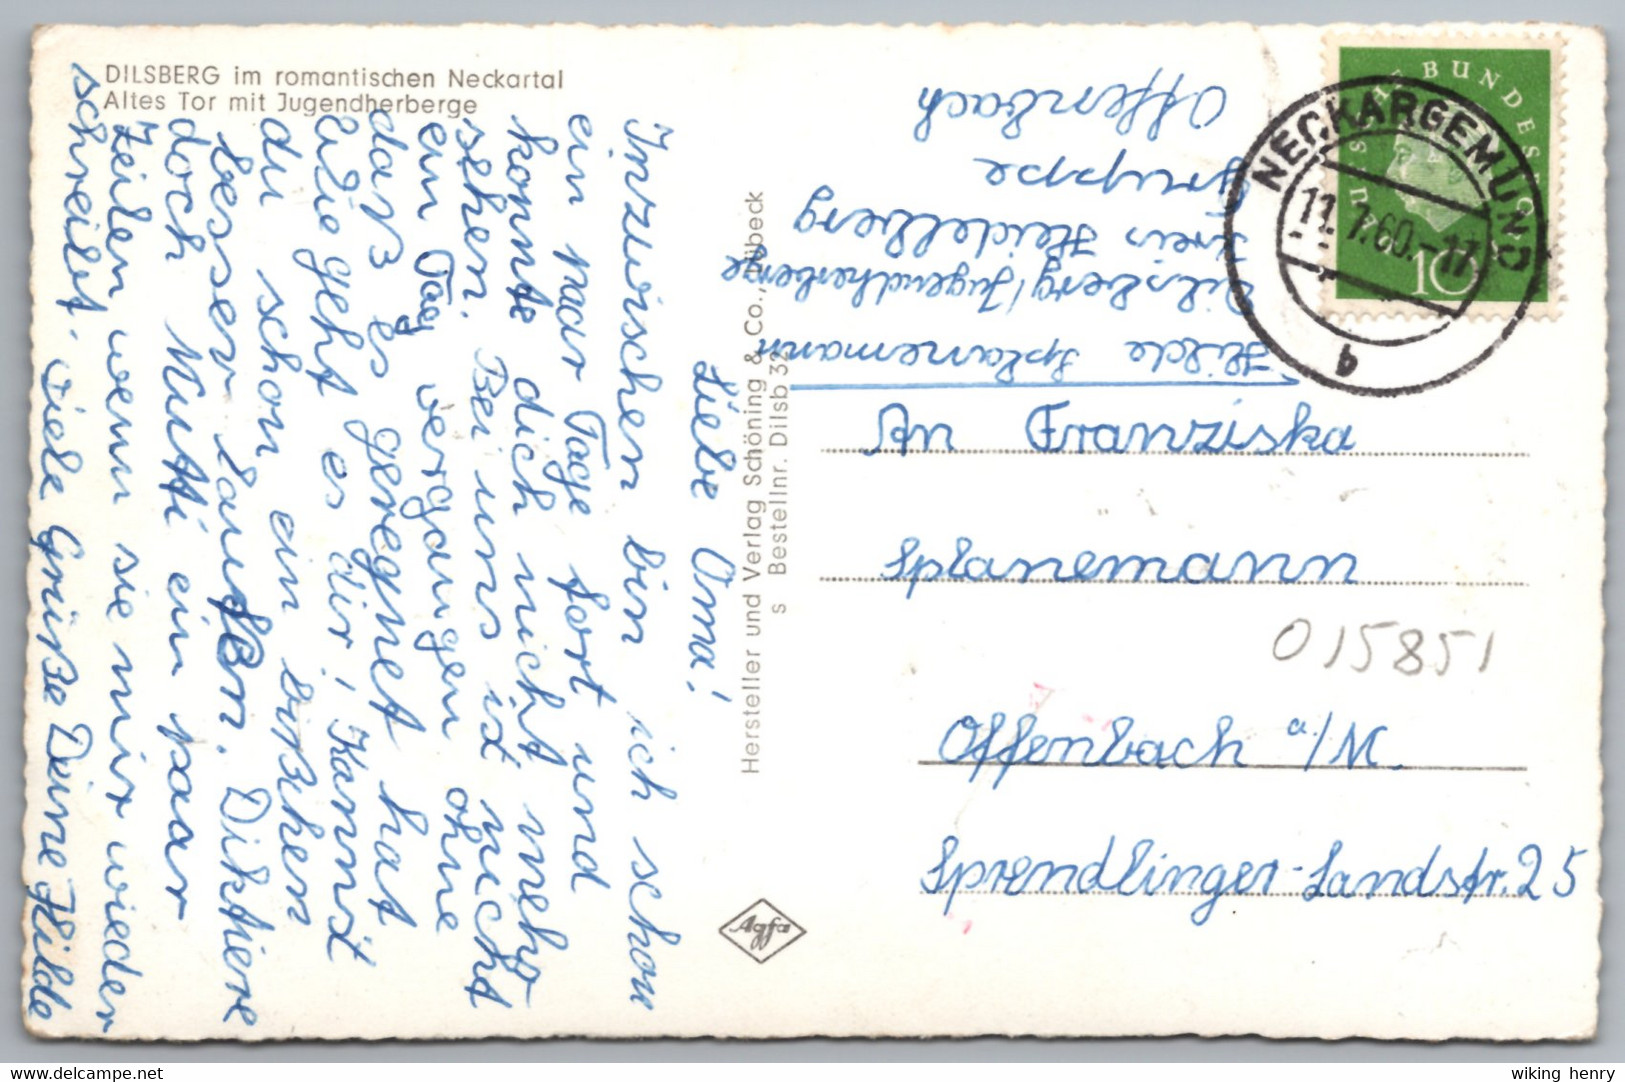 DILSBERG im romantischen Neckartal
Altes Tor mit Jugendherberge
Liebe Oma!
Inzwischen bin ich schon
ein paar Tage fort und
konnte dich nicht mehr
sehen. Bei uns ist nicht
ein Tag vergangen ohne
daß es geregnet hat
Wie geht es dir, Kannst
du schon ein bißchen
besser laufen. Diktiere
doch Mutti ein paar
Zeilen wenn sie mir wieder
schreibt. Viele Grüße Deine Hilde
Hersteller und Verlag Schöning & Co., Lübeck
s Bestellnr. Dilsb 32
Agfa
Hilde Splanemann
Dilsberg/Jugendherberge
Kreis Heidelberg
Gruppe
Offenbach
DEUTSCHE BUNDESPOST
10
NECKARGEMÜND
11.7.60.-17
b
An Franziska
Splanemann
015851
Offenbach a/M.
Sprendlinger-Landstr. 25
delcampe.net
wiking henry